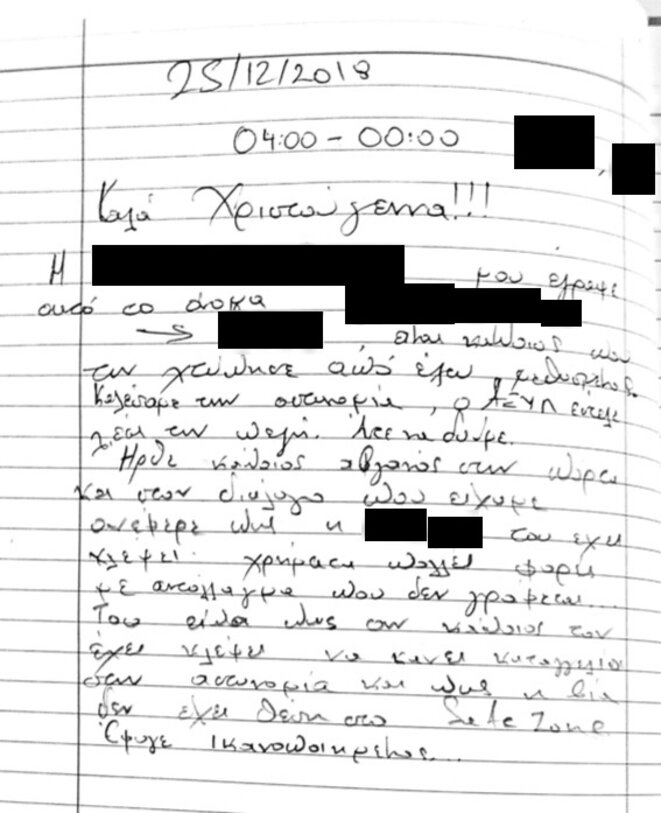 25/12/2018
04:00 - 00:00
Καλά Χριστούγεννα!!!
Η μου έγραψε
αυτό το όνομα
→ , είναι κάποιος που
την χτύπησε από έξω, μεθυσμένος.
Καλέσαμε την αστυνομία, ο ΑΞΥΠ
την . Άντε να δούμε.
Ήρθε κάποιος αβγανός στην πόρτα
και στον διάλογο που είχαμε
ανέφερε πως η του έχει
κλέψει χρήματα πολλές φορές
με αντάλλαγμα που δεν γράφεται...
Του είπα πως αν κάποιος τον
έχει κλέψει να κάνει καταγγελία
στην αστυνομία και πως η βία
δεν έχει θέση στο Safe Zone
Έφυγε ικανοποιημένος...